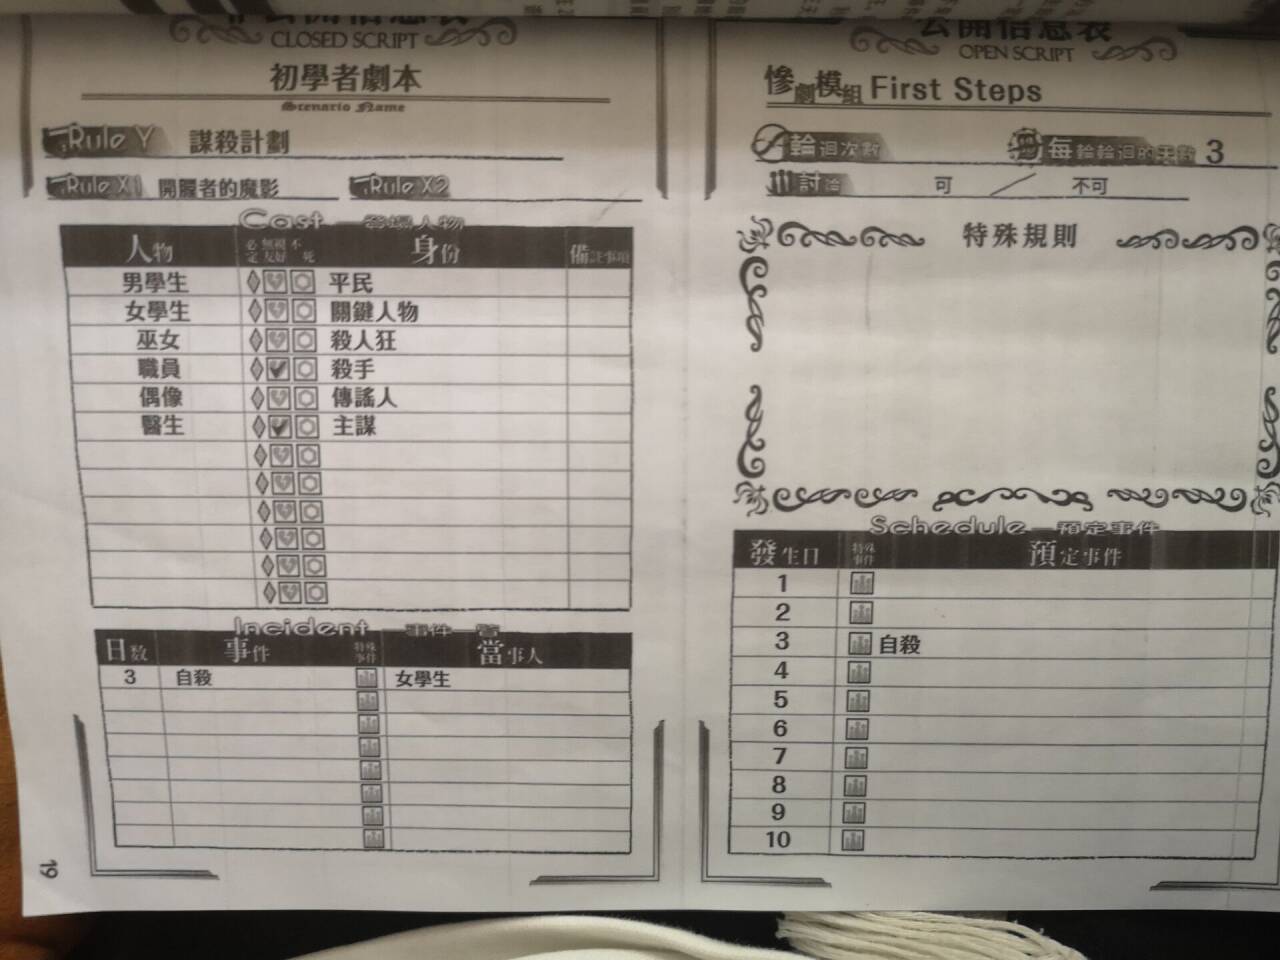 CLOSED SCRIPT
初學者劇本
Scenario Name
Rule Y 謀殺計劃
Rule X1 開膛者的魔影 Rule X2
Cast —登場人物
人物 必定 無視友好 不死 身份 備註事項
男學生 平民
女學生 關鍵人物
巫女 殺人狂
職員 殺手
偶像 傳謠人
醫生 主謀
Incident —事件一覽
日数 事件 特殊事件 當事人
3 自殺 女學生
19
公開信息表
OPEN SCRIPT
慘劇模組 First Steps
輪迴次數 每輪輪迴的天數 3
討論 可 / 不可
特殊規則
Schedule —預定事件
發生日 特殊事件 預定事件
1
2
3 自殺
4
5
6
7
8
9
10